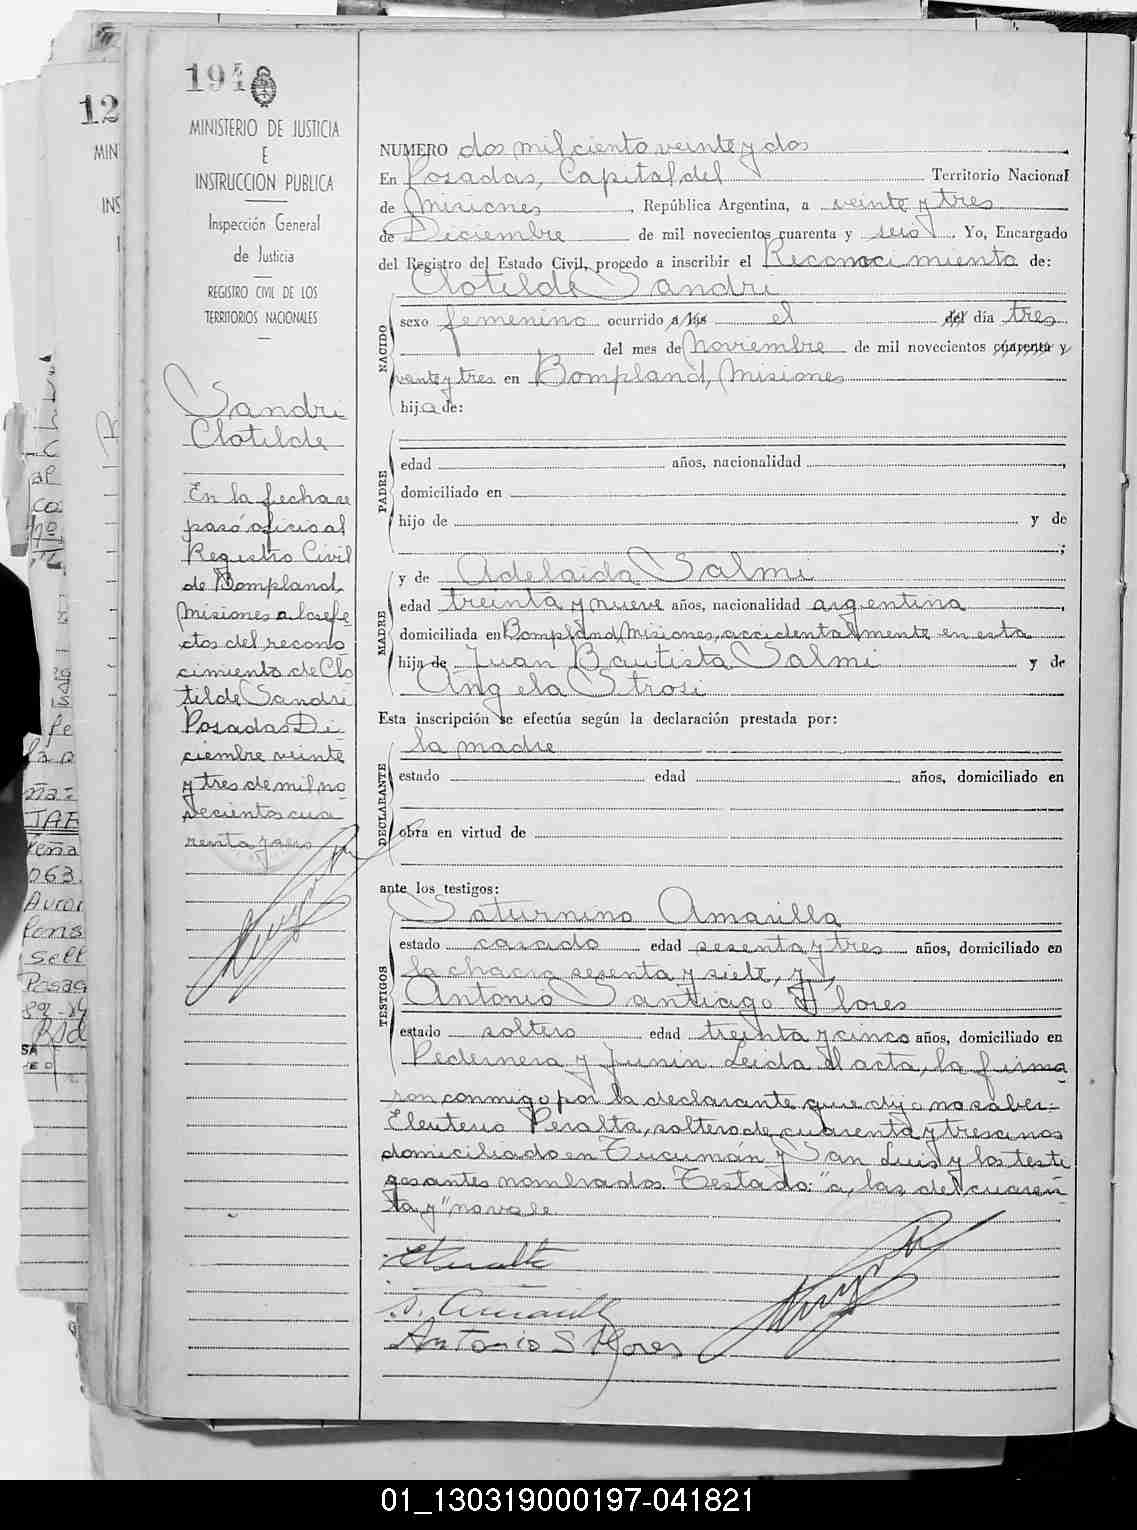 194
MINISTERIO DE JUSTICIA
E
INSTRUCCION PUBLICA
Inspección General
de Justicia
REGISTRO CIVIL DE LOS
TERRITORIOS NACIONALES
Sandri
Clotilde
En la fecha se
pasó oficio al
Registro Civil
de Bompland,
Misiones a los efe
ctos del recono
cimiento de Clo
tilde Sandri
Posadas Di
ciembre veinte
y tres de mil no
vecientos cua
renta y seis
NUMERO dos mil ciento veinte y dos
En Posadas, Capital del Territorio Nacional
de Misiones, República Argentina, a veinte y tres
de Diciembre de mil novecientos cuarenta y seis. Yo, Encargado
del Registro del Estado Civil, procedo a inscribir el Reconocimiento de:
Clotilde Sandri
NACIDO
sexo femenino ocurrido a las el del día tres
del mes de Noviembre de mil novecientos cuarenta y
veinte y tres en Bompland, Misiones
hija de:
PADRE
edad años, nacionalidad
domiciliado en
hijo de y de
;
MADRE
y de Adelaida Salmi
edad treinta y nueve años, nacionalidad argentina,
domiciliada en Bompland, Misiones, accidentalmente en esta
hija de Juan Bautista Salmi y de
Angela Strosi
Esta inscripción se efectúa según la declaración prestada por:
DECLARANTE
la madre
estado edad años, domiciliado en
obra en virtud de
ante los testigos:
TESTIGOS
Saturnino Amarilla
estado casado edad sesenta y tres años, domiciliado en
la chacra sesenta y siete, y
Antonio Santiago Flores
estado soltero edad treinta y cinco años, domiciliado en
Pedernera y Junin. Leida el acta, la firma
ron conmigo por la declarante que dijo no saber:
Eleuterio Peralta, soltero de cuarenta y tres años
domiciliado en Tucumán y San Luis y los testi
gos antes nombrados. Testado: "a, las, del cuaren
ta y" no vale
EPeralta
S. Amarilla
Antonio S Flores
12
MIN
INS
063.
Sell
01_130319000197-041821